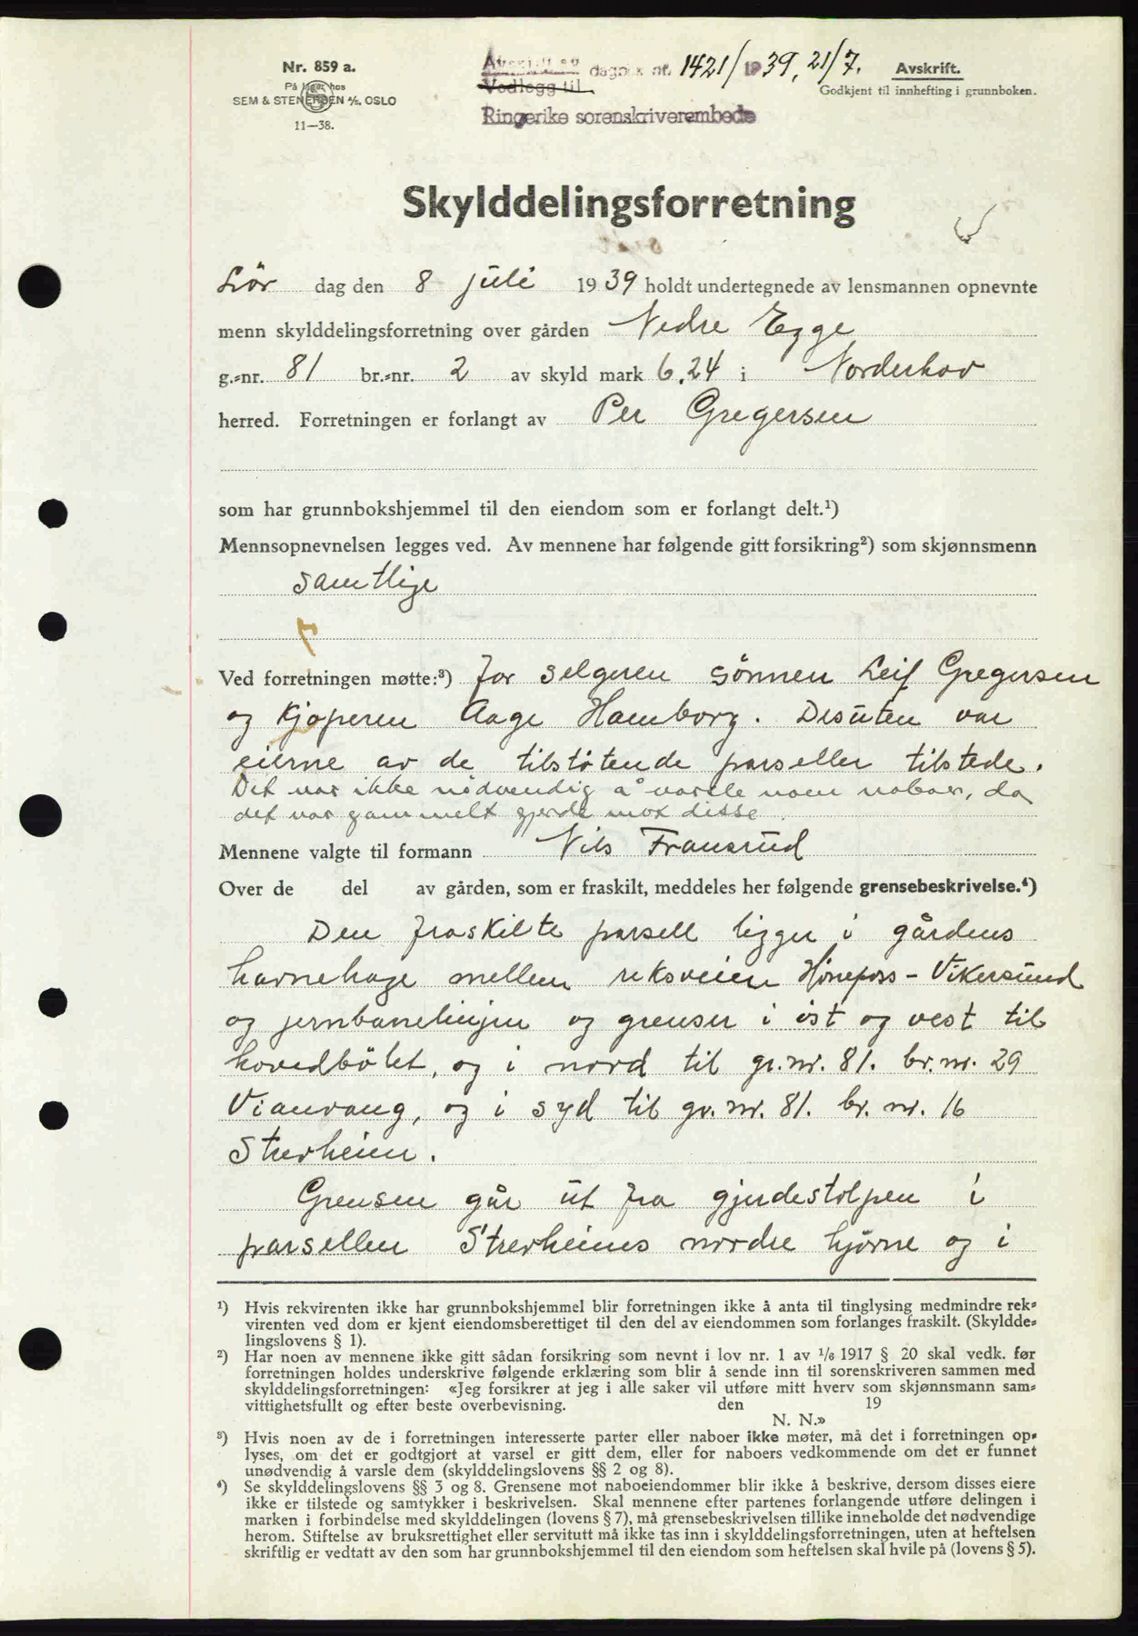 Nr. 859 a.
På lager hos
SEM & STENERSEN A/S. OSLO
11—38.
Avskrift av dagbok nr. 1421/1939, 21/7.
Vedlegg til
Ringerike sorenskriverembede
Avskrift.
Godkjent til innhefting i grunnboken.
Skylddelingsforretning
Lör dag den 8 juli 1939 holdt undertegnede av lensmannen opnevnte
menn skylddelingsforretning over gården Nedre Egge
g.-nr. 81 br.-nr. 2 av skyld mark 6,24 i Norderhov
herred. Forretningen er forlangt av Per Gregersen
som har grunnbokshjemmel til den eiendom som er forlangt delt.¹)
Mennsopnevnelsen legges ved. Av mennene har følgende gitt forsikring²) som skjønnsmenn
samtlige
Ved forretningen møtte:³) for selgeren sönnen Leif Gregersen
og kjøperen Aage Hamborg. Desuten var
eierne av de tilstötende parseller tilstede.
Det var ikke nödvendig å varsle noen naboer, da
det var gammelt gjerde mot disse.
Mennene valgte til formann Nils Fransrud
Over de del av gården, som er fraskilt, meddeles her følgende grensebeskrivelse.⁴)
Den fraskilte parsell ligger i gårdens
havnehage mellem riksveien Hönefoss - Vikersund
og jernbanelinjen og grenser i öst og vest til
hovedbölet, og i nord til gr.nr. 81. br.nr. 29
Vianvang, og i syd til gr.nr. 81. br. nr. 16
Strerheim.
Grensen går ut fra gjerdestolpen i
parsellen Strerheims nordre hjörne og i
¹) Hvis rekvirenten ikke har grunnbokshjemmel blir forretningen ikke å anta til tinglysing medmindre rek-
virenten ved dom er kjent eiendomsberettiget til den del av eiendommen som forlanges fraskilt. (Skyldde-
lingslovens § 1).
²) Har noen av mennene ikke gitt sådan forsikring som nevnt i lov nr. 1 av 1/6 1917 § 20 skal vedk. før
forretningen holdes underskrive følgende erklæring som blir å sende inn til sorenskriveren sammen med
skylddelingsforretningen: «Jeg forsikrer at jeg i alle saker vil utføre mitt hverv som skjønnsmann sam-
vittighetsfullt og efter beste overbevisning. den 19
N. N.»
³) Hvis noen av de i forretningen interesserte parter eller naboer ikke møter, må det i forretningen op-
lyses, om det er godtgjort at varsel er gitt dem, eller for naboers vedkommende om det er funnet
unødvendig å varsle dem (skylddelingslovens §§ 2 og 8).
⁴) Se skylddelingslovens §§ 3 og 8. Grensene mot naboeiendommer blir ikke å beskrive, dersom disses eiere
ikke er tilstede og samtykker i beskrivelsen. Skal mennene efter partenes forlangende utføre delingen i
marken i forbindelse med skylddelingen (lovens § 7), må grensebeskrivelsen tillike inneholde det nødvendige
herom. Stiftelse av bruksrettighet eller servitutt må ikke tas inn i skylddelingsforretningen, uten at heftelsen
skriftlig er vedtatt av den som har grunnbokshjemmel til den eiendom som heftelsen skal hvile på (lovens § 5).